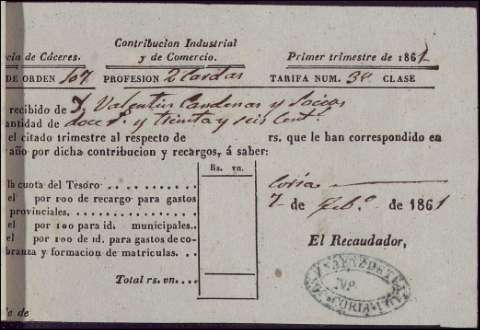 cia de Cáceres.
Contribucion Industrial
y de Comercio.
Primer trimestre de 1861
DE ORDEN 107 PROFESION 2 Cardas TARIFA NUM. 3ª CLASE
recibido de D. Valentin Candenas y Socios
antidad de doce rs. y treinta y seis cent.
el citado trimestre al respecto de rs. que le han correspondido en
año por dicha contribucion y recargos, á saber:
Rs. vn.
la cuota del Tesoro
el por 100 de recargo para gastos
provinciales.
el por 100 para id. municipales.
el por 100 de id. para gastos de co-
branza y formacion de matriculas.
Total rs. vn.
Coria
7 de Feb.º de 1861
El Recaudador,
CORIA
de